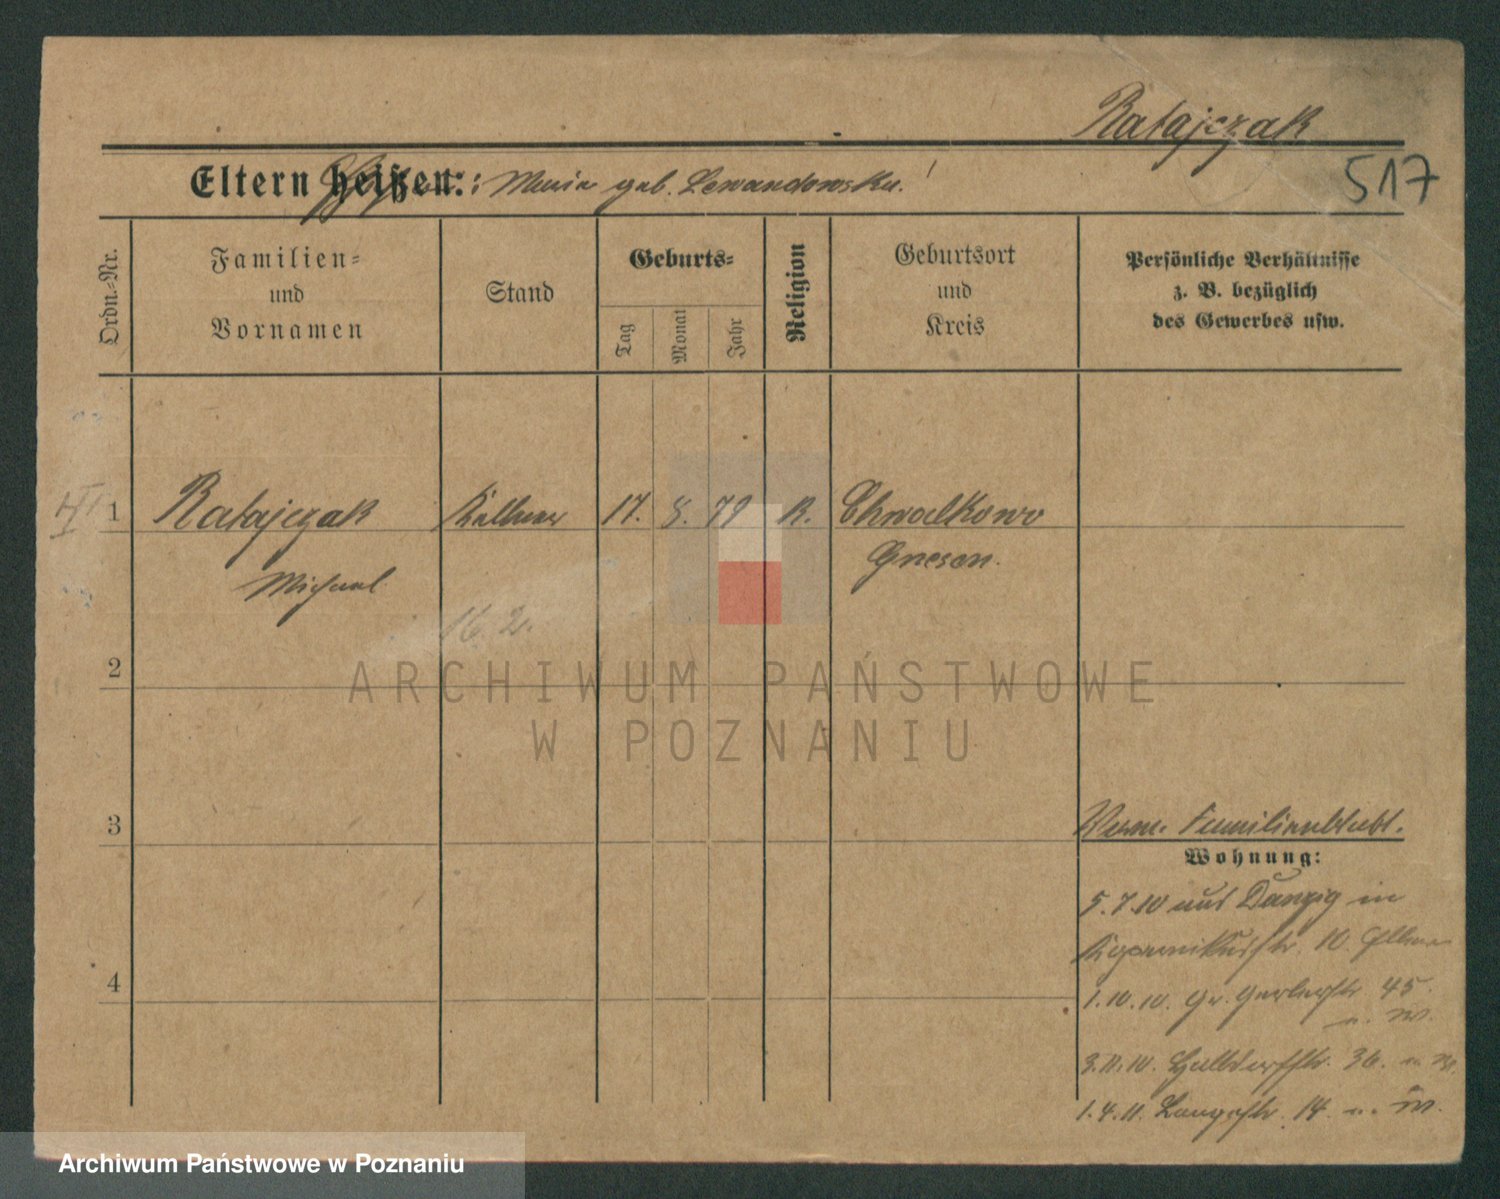 Ratajczak
517
Eltern heißen: : Maria geb. Lewandowska!
Ordn.-Nr.
Familien-
und
Vornamen
Stand
Geburts-
Tag
Monat
Jahr
Religion
Geburtsort
und
Kreis
Persönliche Verhältnisse
z. B. bezüglich
des Gewerbes usw.
1 Ratajczak Kellner 17. 8. 79 R. Chwalkowo
Gnesen.
Michael
16 2.
2
3
Familienblatt.
Wohnung:
5.7.10 aus Danzig in
Kopernikusstr. 10.
4
1.10.10. Gr. Gerberstr. 45.
3.11.10. Halbdorfstr. 36.
1.4.11. Langestr. 14
ARCHIWUM PAŃSTWOWE
W POZNANIU
Archiwum Państwowe w Poznaniu